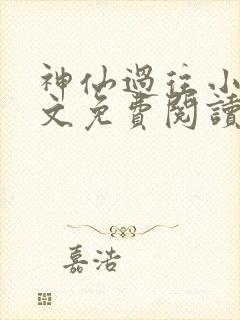 神仙過往小
文免費閱讀
嘉浩